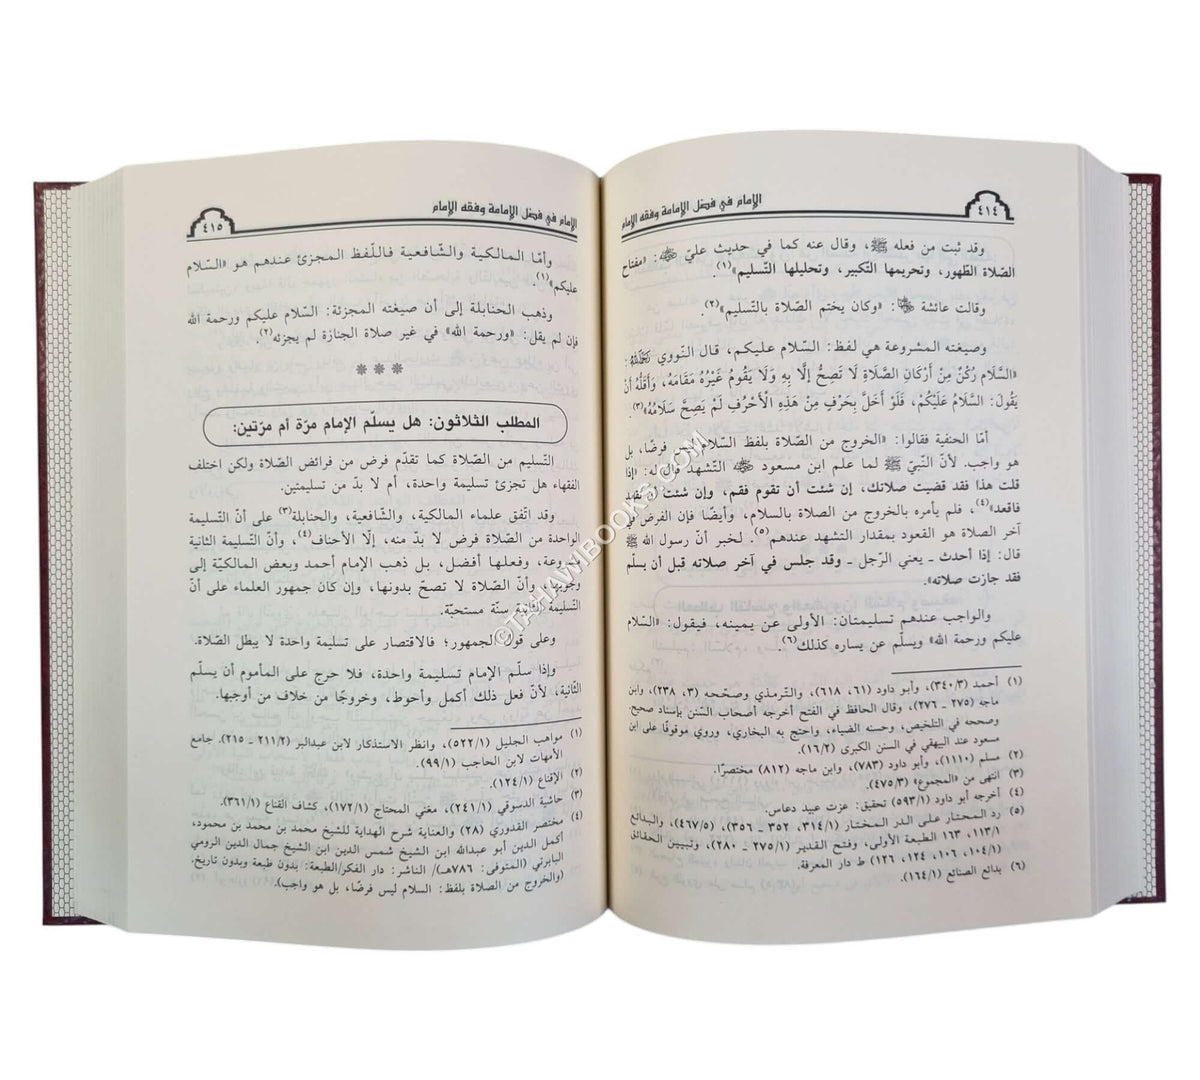 ٤١٤
الإمام في فضل الإمامة وفقه الإمام
وقد ثبت من فعله ﷺ، وقال عنه كما في حديث عليّ رضي الله عنه: «مفتاح
الصّلاة الطّهور، وتحريمها التّكبير، وتحليلها التّسليم»(١).
وقالت عائشة رضي الله عنها: «وكان يختم الصّلاة بالتّسليم»(٢).
وصيغته المشروعة هي لفظ: السّلام عليكم، قال النّووي رحمه الله:
«السَّلَام رُكْنٌ مِنْ أَرْكَانِ الصَّلَاةِ لَا تَصِحُّ إلَّا بِهِ وَلَا يَقُومُ غَيْرُهُ مَقَامَهُ، وَأَقَلُّهُ أَنْ
يَقُولَ: السَّلَامُ عَلَيْكُمْ، فَلَوْ أَخَلَّ بِحَرْفٍ مِنْ هَذِهِ الْأَحْرُفِ لَمْ يَصِحَّ سَلَامُهُ»(٣).
أمّا الحنفية فقالوا: «الخروج من الصّلاة بلفظ السّلام ليس فرضًا، بل
هو واجب. لأنّ النّبيّ ﷺ لما علم ابن مسعود رضي الله عنه التّشهد قال له: «إذا
قلت هذا فقد قضيت صلاتك، إن شئت أن تقوم فقم، وإن شئت أن تقعد
فاقعد»(٤)، فلم يأمره بالخروج من الصّلاة بالسّلام، وأيضًا فإن الفرض في
آخر الصّلاة هو القعود بمقدار التّشهد عندهم(٥). لخبر أنّ رسول الله ﷺ
قال: إذا أحدث ـ يعني الرّجل ـ وقد جلس في آخر صلاته قبل أن يسلّم
فقد جازت صلاته».
والواجب عندهم تسليمتان: الأولى عن يمينه، فيقول: «السّلام
عليكم ورحمة الله» ويسلّم عن يساره كذلك(٦).
(١) أحمد (٣٤٠/٣)، وأبو داود (٦١، ٦١٨)، والتّرمذي وصحّحه (٣، ٢٣٨)، وابن
ماجه (٢٧٥ ـ ٢٧٦). وقال الحافظ في الفتح أخرجه أصحاب السّنن بإسناد صحيح.
وصححه في التلخيص، وحسنه الضياء، واحتج به البخاري، وروي موقوفًا على ابن
مسعود عند البيهقي في السنن الكبرى (١٦/٢).
(٢) مسلم (١١١٠)، وأبو داود (٧٨٣)، وابن ماجه (٨١٢) مختصرًا.
(٣) انتهى من «المجموع» (٤٧٥/٣).
(٤) أخرجه أبو داود (٥٩٣/١) تحقيق: عزت عبيد دعاس.
(٥) رد المحتار على الدر المختار (٣١٤/١، ٣٥٢ ـ ٣٥٦)، (٤٦٧/٥)، والبدائع
١١٣/١، ١٦٣ الطبعة الأولى، وفتح القدير (٢٧٥/١ ـ ٢٨٠)، وتبيين الحقائق
(١٠٤/١، ١٠٦، ١٢٤، ١٢٦) ط دار المعرفة.
(٦) بدائع الصنائع (١٦٤/١).
٤١٥
الإمام في فضل الإمامة وفقه الإمام
وأمّا المالكية والشّافعية فاللّفظ المجزئ عندهم هو «السّلام
عليكم»(١).
وذهب الحنابلة إلى أن صيغته المجزئة: السّلام عليكم ورحمة الله
فإن لم يقل: «ورحمة الله» في غير صلاة الجنازة لم يجزئه(٢).
المطلب الثلاثون: هل يسلّم الإمام مرّة أم مرّتين:
التّسليم من الصّلاة كما تقدّم فرض من فرائض الصّلاة ولكن اختلف
الفقهاء هل تجزئ تسليمة واحدة، أم لا بدّ من تسليمتين.
وقد اتّفق علماء المالكية، والشّافعية، والحنابلة(٣) على أنّ التّسليمة
الواحدة من الصّلاة فرض لا بدّ منه، إلّا الأحناف(٤)، وأنّ التّسليمة الثانية
مشروعة، وفعلها أفضل، بل ذهب الإمام أحمد وبعض المالكيّة إلى
وجوبها، وأنّ الصّلاة لا تصحّ بدونها، وإن كان جمهور العلماء على أنّ
التّسليمة الثّانية سنّة مستحبّة.
وعلى قول الجمهور؛ فالاقتصار على تسليمة واحدة لا يبطل الصّلاة.
وإذا سلّم الإمام تسليمة واحدة، فلا حرج على المأموم أن يسلّم
الثّانية، لأنّ فعل ذلك أكمل وأحوط، وخروجًا من خلاف من أوجبها.
(١) مواهب الجليل (٥٢٢/١)، وانظر الاستذكار لابن عبدالبر (٢١١/٢ ـ ٢١٥). جامع
الأمهات لابن الحاجب (٩٩/١).
(٢) الإقناع (١٢٤/١).
(٣) حاشية الدسوقي (٢٤١/١)، مغني المحتاج (١٧٢/١)، كشاف القناع (٣٦١/١).
(٤) مختصر القدوري (٢٨) والعناية شرح الهداية للشيخ محمد بن محمد بن محمود،
أكمل الدين أبو عبدالله ابن الشيخ شمس الدين ابن الشيخ جمال الدين الرومي
البابرتي (المتوفى: ٧٨٦هـ)/ الناشر: دار الفكر/الطبعة: بدون طبعة وبدون تاريخ.
(والخروج من الصلاة بلفظ: السلام ليس فرضًا، بل هو واجب).
©TAHAWIBOOKS.COM